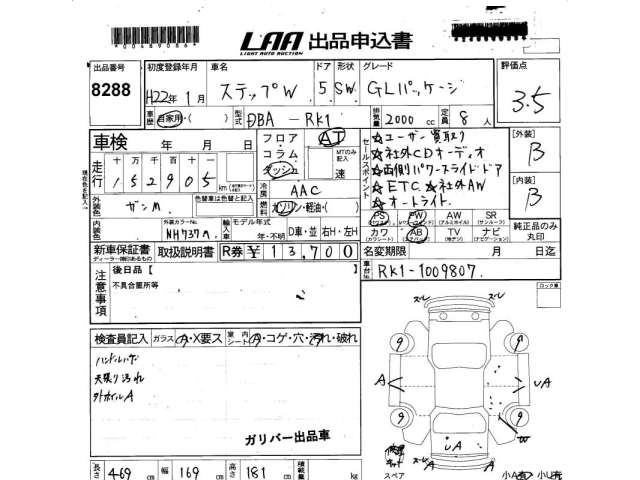 LAA 出品申込書
LIGHT AUTO AUCTION
出品番号 初度登録年月 車名 ドア 形状 グレード 評価点
8288 H22年 1月 ステップW 5 SW GLパッケージ 3.5
車歴 自家用・( ) 型式 DBA - RK1 排気量 2000 cc 定員 8人
車検 年 月 日 フロア・コラム・ダッシュ AT セールスポイント ☆ユーザー買取り 【外装】
MTのみ記入 ☆社外CDオーディオ B
走行 十万千百十 152905 km 速 ☆両側パワースライドドア
現在色を記入 色替車は色替と記入 冷房 AAC ☆ETC ☆社外AW 【内装】
外装色 ガンM 燃料 ガソリン・軽油・( ) ☆オートライト B
PS PW AW SR
内装色 外装カラーNo. NH737M 輸入車 モデル年式 年・不明 D車・並 右H・左H カワ AB TV ナビ 純正品のみ丸印
(カワシート) (エアバッグ) (地デジ) (ナビゲーション)
新車保証書 取扱説明書 R券 ¥ 13,700 名変期限 月 日迄
ディーラー捺印あるもの
注意事項 後日品【 】 車台No. RK1-1009807
不具合箇所等 ロック車
検査員記入 ガラス A・X要ス 室内シート A・コゲ・穴・汚れ・破れ
ハンドルハゲ
天張り汚れ
外ホイルA
ガリバー出品車
長さ 469 cm 幅 169 cm 高さ 181 cm 積載量 kg
ズレ ズレ
9 9
A UA
9 9
W
修理キット UA
A A
スペア 小A 小U